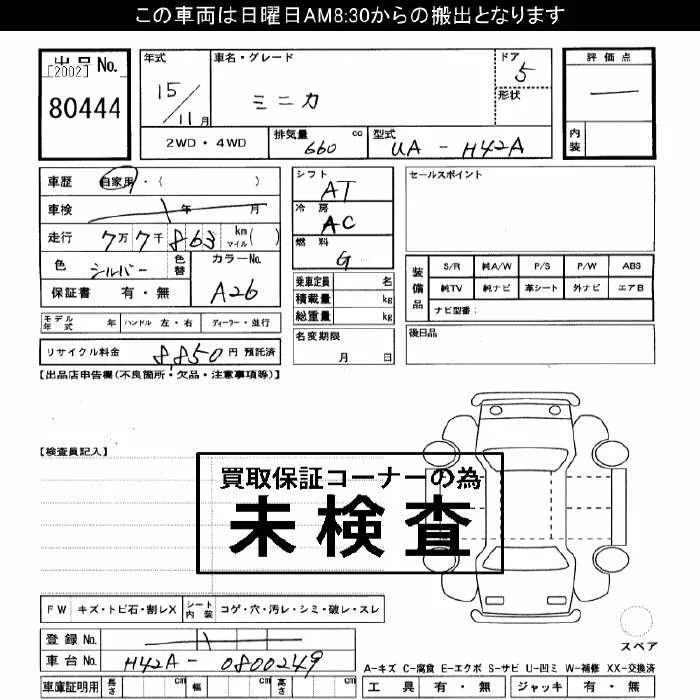 この車両は日曜日AM8:30からの搬出となります
出品 No.
[2002]
80444
年式 15/11月
車名・グレード ミニカ
ドア 5
形状
評価点 —
内装
2WD・4WD
排気量 660 cc
型式 UA - H42A
車歴 自家用・( )
車検 年 月
走行 7万7千863 km マイル( )
色 シルバー 色替
カラーNo. A26
保証書 有・無
モデル年式 年 ハンドル 左・右 ディーラー・並行
リサイクル料金 8,850円 預託済
シフト AT
冷房 AC
燃料 G
乗車定員 名
積載量 kg
総重量 kg
名変期限
月 日
セールスポイント
装備品
S/R 純A/W P/S P/W ABS
純TV 純ナビ 革シート 外ナビ エアB
ナビ型番:
後日品
【出品店申告欄(不良箇所・欠品・注意事項等)】
【検査員記入】
買取保証コーナーの為
未検査
FW キズ・トビ石・割レX シート内装 コゲ・穴・汚レ・シミ・破レ・スレ
登録No.
車台No. H42A - 0800249
車庫証明用 長さ cm 幅 cm 高さ cm
スペア
A-キズ C-腐食 E-エクボ S-サビ U-凹ミ W-補修 XX-交換済
工具 有・無 ジャッキ 有・無